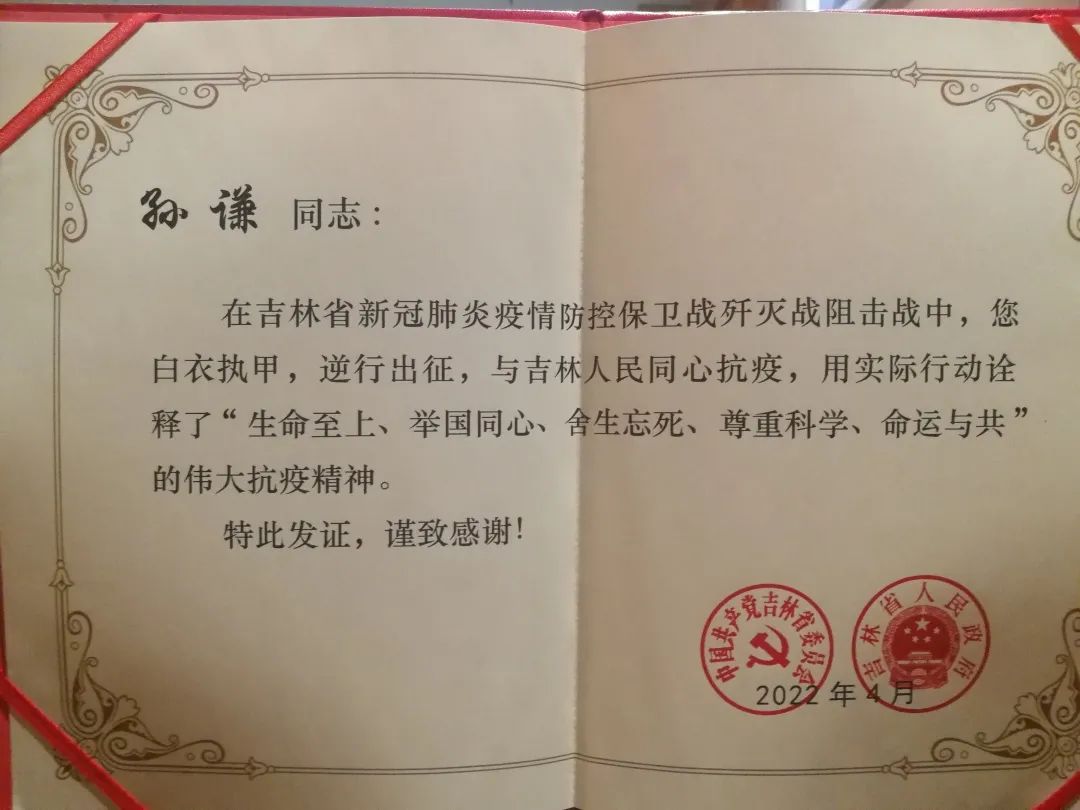 孙谦 同志：
在吉林省新冠肺炎疫情防控保卫战歼灭战阻击战中，您
白衣执甲，逆行出征，与吉林人民同心抗疫，用实际行动诠
释了“生命至上、举国同心、舍生忘死、尊重科学、命运与共”
的伟大抗疫精神。
特此发证，谨致感谢！
中国共产党吉林省委员会
吉林省人民政府
2022年4月